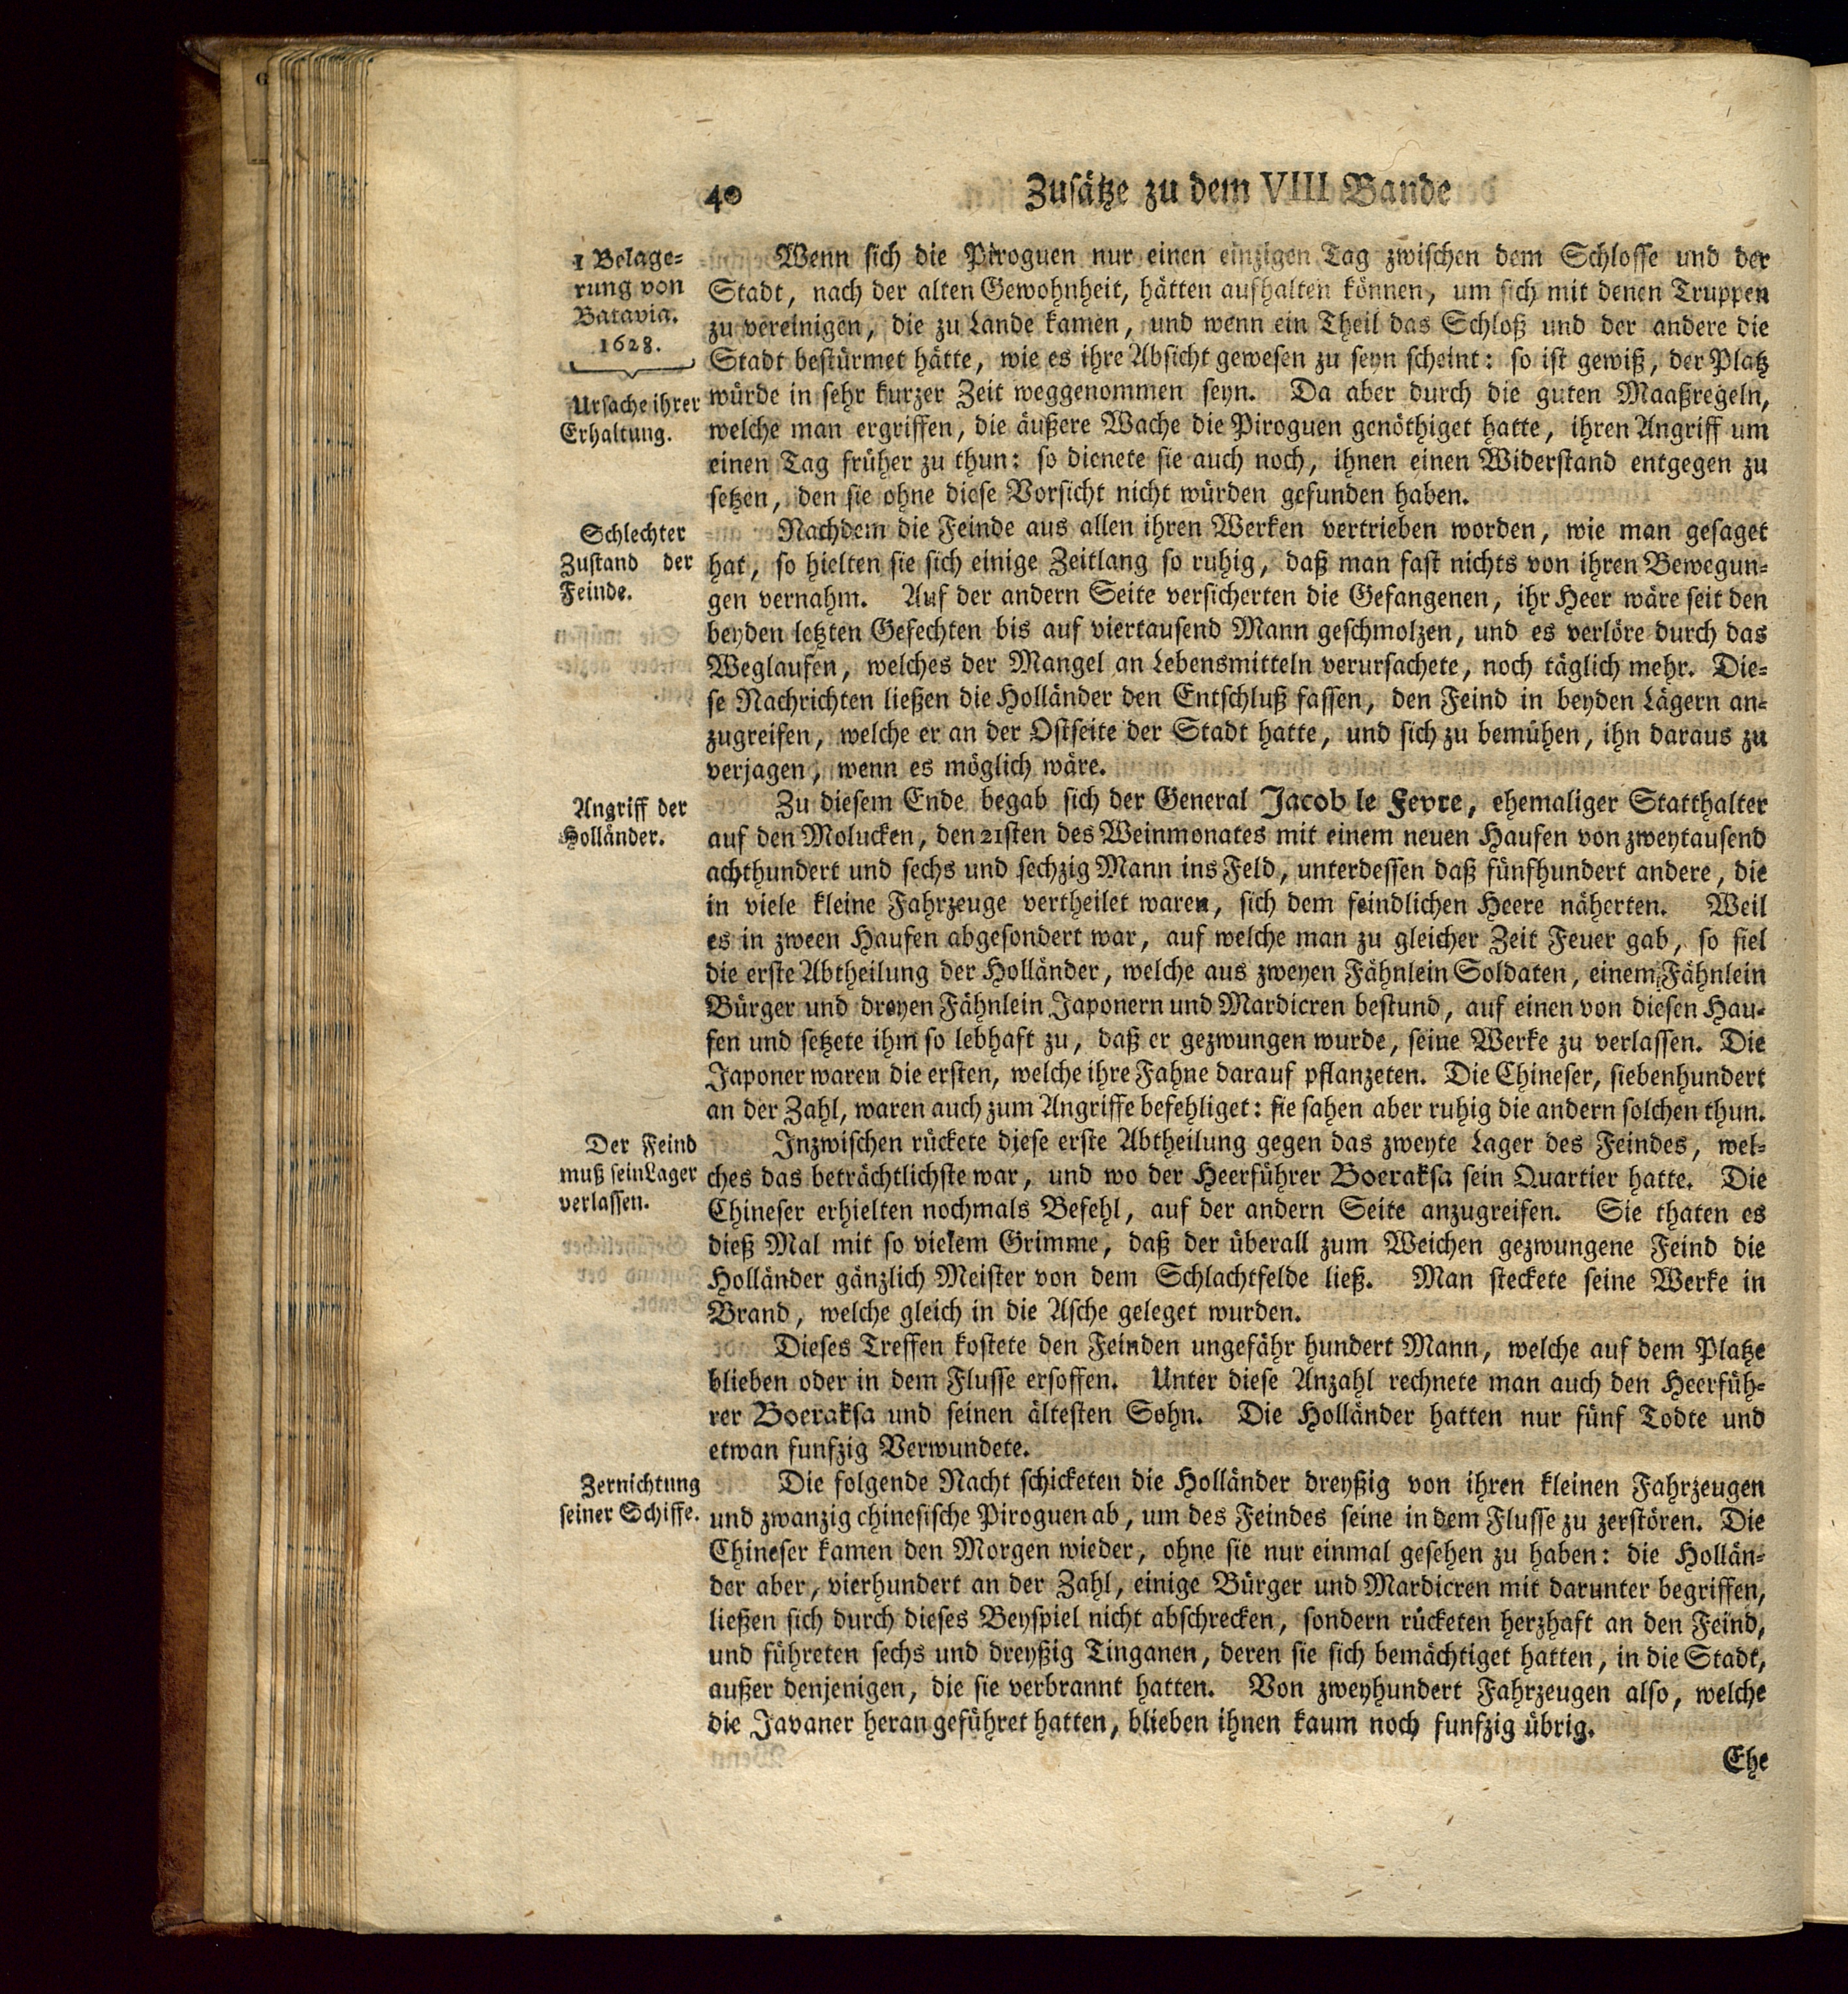 40
Zusätze zu dem VIII Bande
1 Belage-
rung von
Batavia.
1628.
Ursache ihrer
Erhaltung.
Wenn sich die Piroguen nur einen einzigen Tag zwischen dem Schlosse und der
Stadt, nach der alten Gewohnheit, hätten aufhalten können, um sich mit denen Truppen
zu vereinigen, die zu Lande kamen, und wenn ein Theil das Schloß und der andere die
Stadt bestürmet hätte, wie es ihre Absicht gewesen zu seyn scheint: so ist gewiß, der Platz
würde in sehr kurzer Zeit weggenommen seyn. Da aber durch die guten Maaßregeln,
welche man ergriffen, die äußere Wache die Piroguen genöthiget hatte, ihren Angriff um
einen Tag früher zu thun: so dienete sie auch noch, ihnen einen Widerstand entgegen zu
setzen, den sie ohne diese Vorsicht nicht würden gefunden haben.
Schlechter
Zustand der
Feinde.
Nachdem die Feinde aus allen ihren Werken vertrieben worden, wie man gesaget
hat, so hielten sie sich einige Zeitlang so ruhig, daß man fast nichts von ihren Bewegun-
gen vernahm. Auf der andern Seite versicherten die Gefangenen, ihr Heer wäre seit den
beyden letzten Gefechten bis auf viertausend Mann geschmolzen, und es verlöre durch das
Weglaufen, welches der Mangel an Lebensmitteln verursachete, noch täglich mehr. Die-
se Nachrichten ließen die Holländer den Entschluß fassen, den Feind in beyden Lägern an-
zugreifen, welche er an der Ostseite der Stadt hatte, und sich zu bemühen, ihn daraus zu
verjagen, wenn es möglich wäre.
Angriff der
Holländer.
Zu diesem Ende begab sich der General Jacob le Fevre, ehemaliger Statthalter
auf den Molucken, den 21sten des Weinmonates mit einem neuen Haufen von zweytausend
achthundert und sechs und sechzig Mann ins Feld, unterdessen daß fünfhundert andere, die
in viele kleine Fahrzeuge vertheilet waren, sich dem feindlichen Heere näherten. Weil
es in zween Haufen abgesondert war, auf welche man zu gleicher Zeit Feuer gab, so fiel
die erste Abtheilung der Holländer, welche aus zweyen Fähnlein Soldaten, einem Fähnlein
Bürger und dreyen Fähnlein Japonern und Mardicren bestund, auf einen von diesen Hau-
fen und setzete ihm so lebhaft zu, daß er gezwungen wurde, seine Werke zu verlassen. Die
Japoner waren die ersten, welche ihre Fahne darauf pflanzeten. Die Chineser, siebenhundert
an der Zahl, waren auch zum Angriffe befehliget: sie sahen aber ruhig die andern solchen thun.
Der Feind
muß sein Lager
verlassen.
Inzwischen rückete diese erste Abtheilung gegen das zweyte Lager des Feindes, wel-
ches das beträchtlichste war, und wo der Heerführer Boeraksa sein Quartier hatte. Die
Chineser erhielten nochmals Befehl, auf der andern Seite anzugreifen. Sie thaten es
dieß Mal mit so vielem Grimme, daß der überall zum Weichen gezwungene Feind die
Holländer gänzlich Meister von dem Schlachtfelde ließ. Man steckete seine Werke in
Brand, welche gleich in die Asche geleget wurden.
Dieses Treffen kostete den Feinden ungefähr hundert Mann, welche auf dem Platze
blieben oder in dem Flusse ersoffen. Unter diese Anzahl rechnete man auch den Heerfüh-
rer Boeraksa und seinen ältesten Sohn. Die Holländer hatten nur fünf Todte und
etwan funfzig Verwundete.
Zernichtung
seiner Schiffe.
Die folgende Nacht schicketen die Holländer dreyßig von ihren kleinen Fahrzeugen
und zwanzig chinesische Piroguen ab, um des Feindes seine in dem Flusse zu zerstören. Die
Chineser kamen den Morgen wieder, ohne sie nur einmal gesehen zu haben: die Hollän-
der aber, vierhundert an der Zahl, einige Bürger und Mardicren mit darunter begriffen,
ließen sich durch dieses Beyspiel nicht abschrecken, sondern rücketen herzhaft an den Feind,
und führeten sechs und dreyßig Tinganen, deren sie sich bemächtiget hatten, in die Stadt,
außer denjenigen, die sie verbrannt hatten. Von zweyhundert Fahrzeugen also, welche
die Javaner heran geführet hatten, blieben ihnen kaum noch funfzig übrig.
Ehe